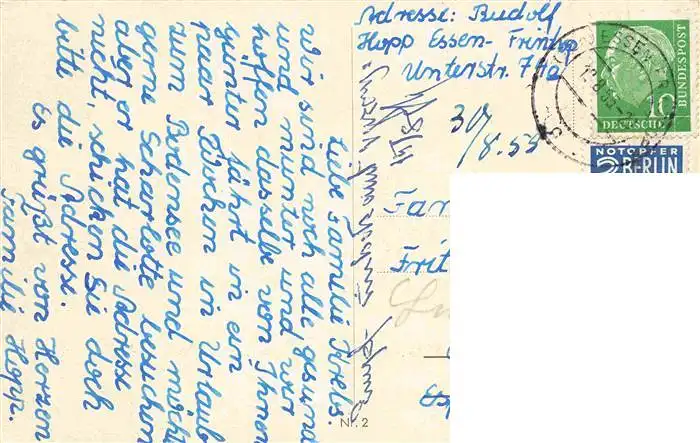 Liebe Familie Krebs.
Wir sind noch alle gesund
und munter und wir
hoffen dasselbe von Ihnen
Günter fährt in ein
paar Wochen in Urlaub
zum Bodensee und möcht
gerne Scharlotte besuchen
aber er hat die Adresse
nicht, schicken Sie doch
bitte die Adresse.
Es grüßt von Herzen
Familie Hopp.
Adresse: Rudolf
Hopp Essen-Frintrop
Unterstr. 71a
30/
/8.55
Fam
Frit
Nr. 2
10
DEUTSCHE
BUNDESPOST
NOTOPFER
2 BERLIN